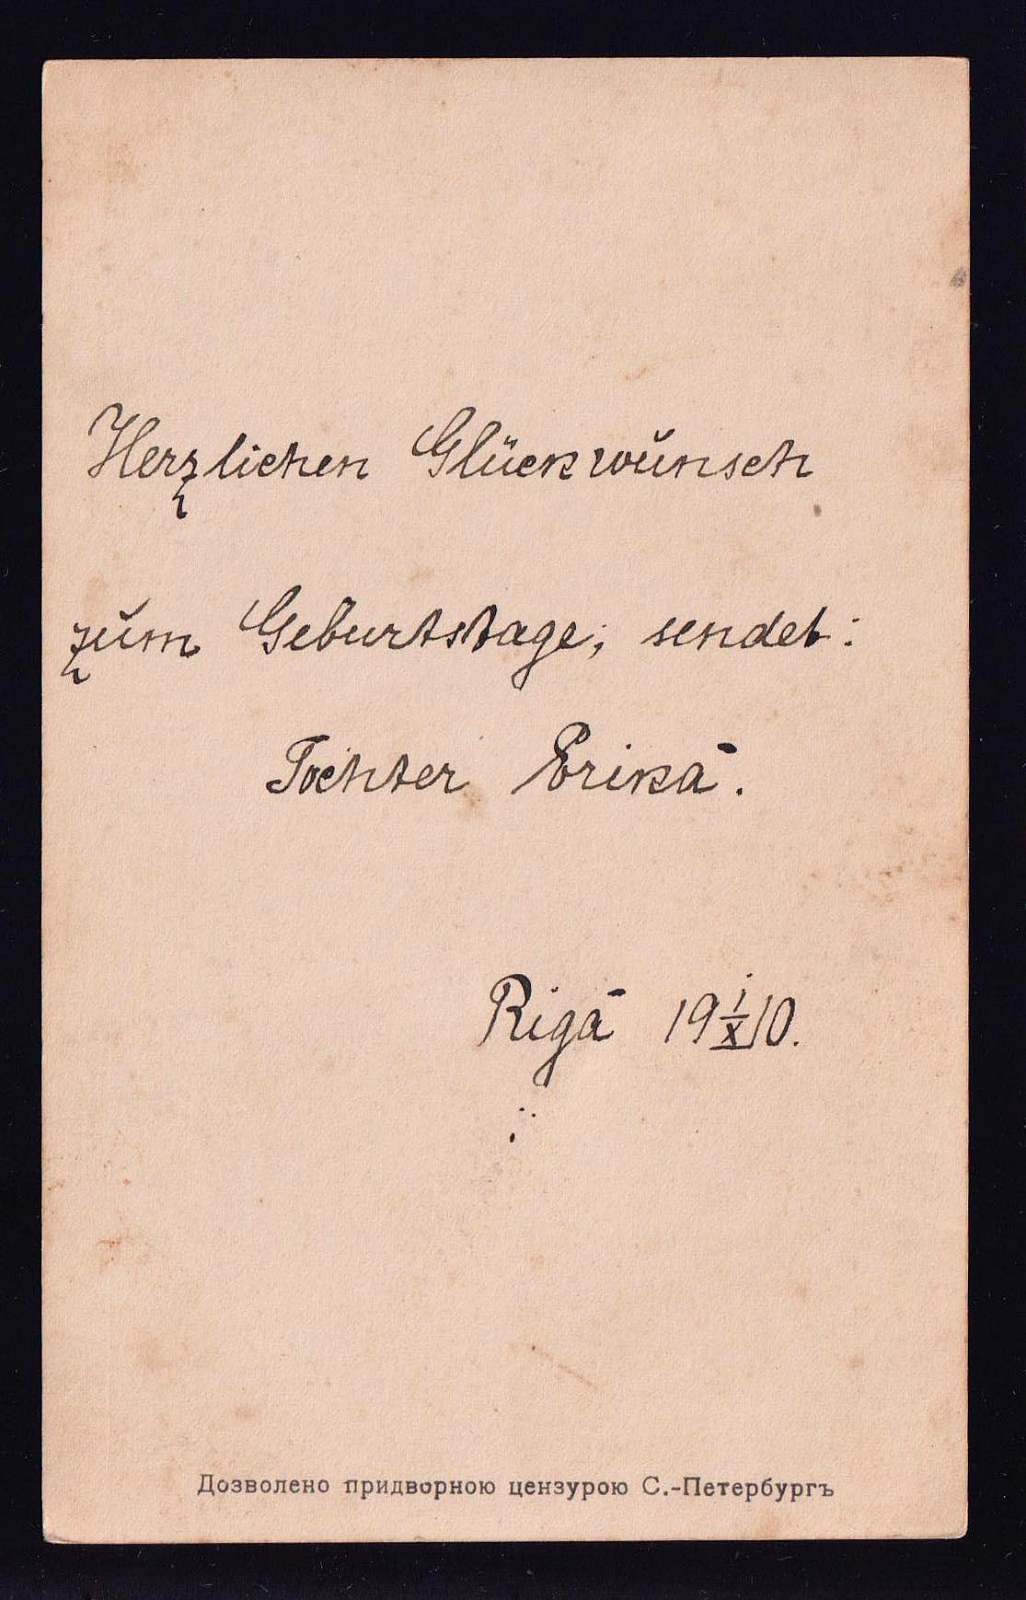 Herzlichen Glückwunsch
zum Geburtstage, sendet:
Tochter Erika.
Riga 19 1/X 10.
Дозволено придворною цензурою С.-Петербургъ